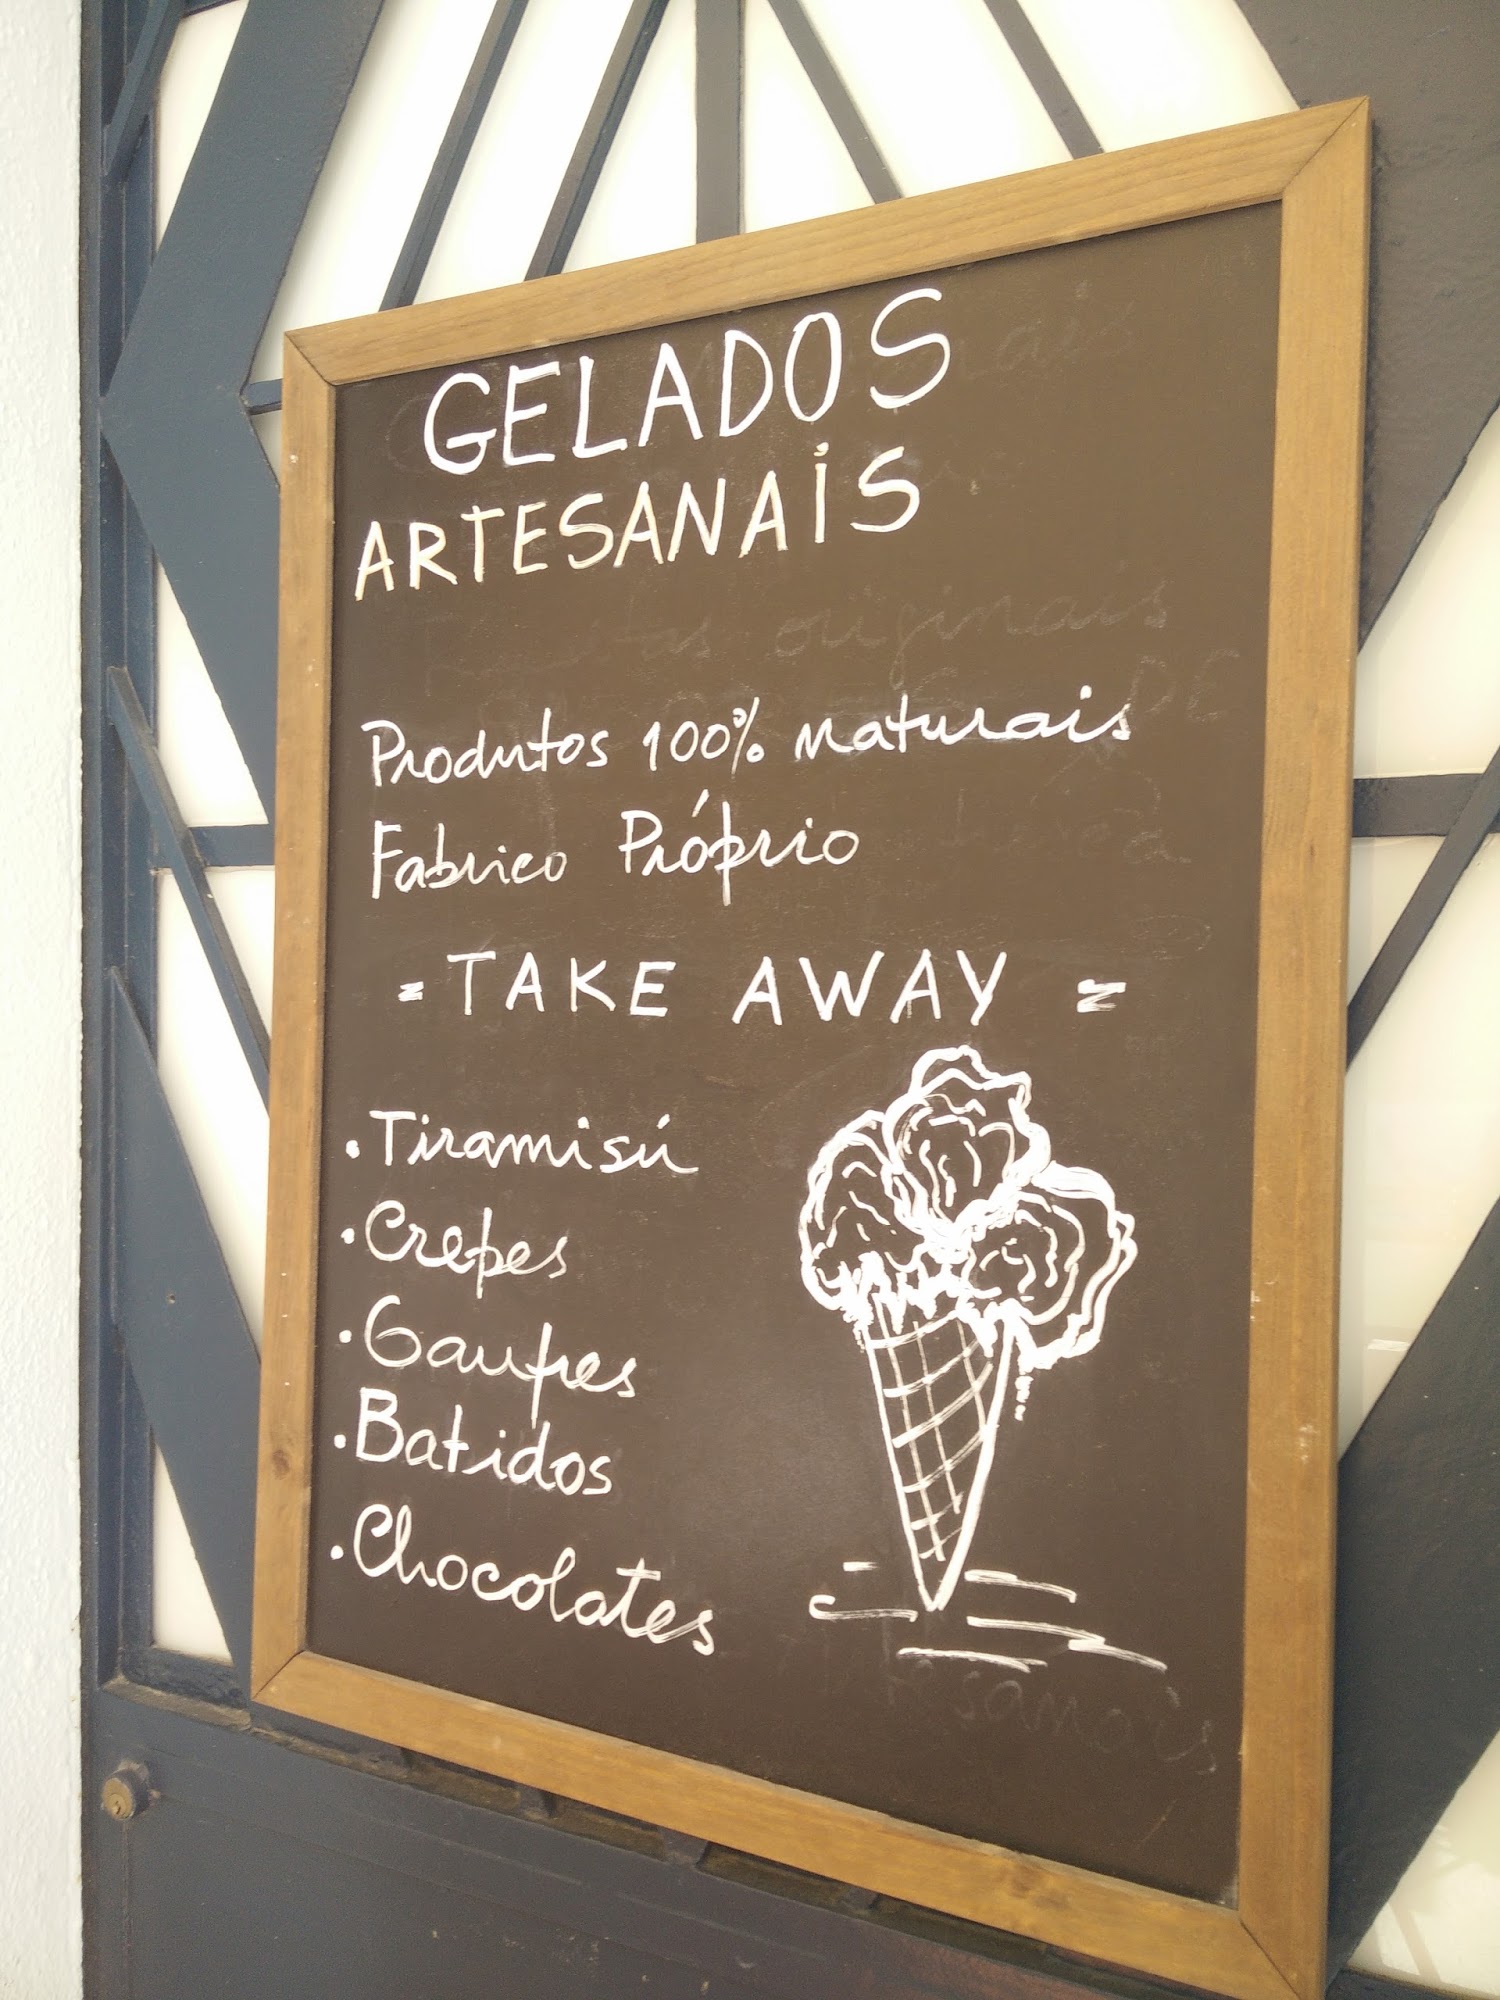 GELADOS
ARTESANAIS
originais
Produtos 100% naturais
Fabrico Próprio
= TAKE AWAY =
• Tiramisú
• Crepes
• Gaufres
• Batidos
• Chocolates